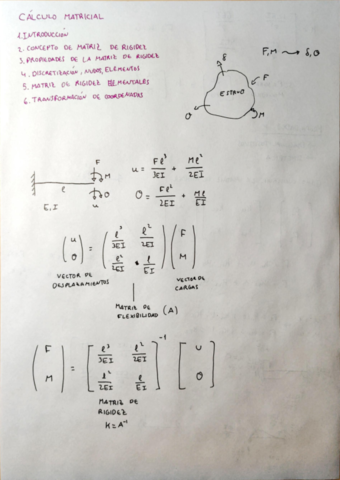 CÁLCULO MATRICIAL
1. INTRODUCCIÓN
2. CONCEPTO DE MATRIZ DE RIGIDEZ
3. PROPIEDADES DE LA MATRIZ DE RIGIDEZ
4. DISCRETIZACIÓN, NUDOS, ELEMENTOS
5. MATRIZ DE RIGIDEZ ELEMENTALES
6. TRANSFORMACIÓN DE COORDENADAS
F, M → δ, θ
δ
F
ESTADO
θ
M
F
M
θ
l
E, I
u
u = Fl³/3EI + Ml²/2EI
θ = Fl²/2EI + Ml/EI
(u θ) = (l³/3EI l²/2EI l²/2EI l/EI) (F M)
VECTOR DE DESPLAZAMIENTOS
VECTOR DE CARGAS
MATRIZ DE FLEXIBILIDAD (A)
(F M) = [l³/3EI l²/2EI l²/2EI l/EI]⁻¹ [u θ]
MATRIZ DE RIGIDEZ
K = A⁻¹